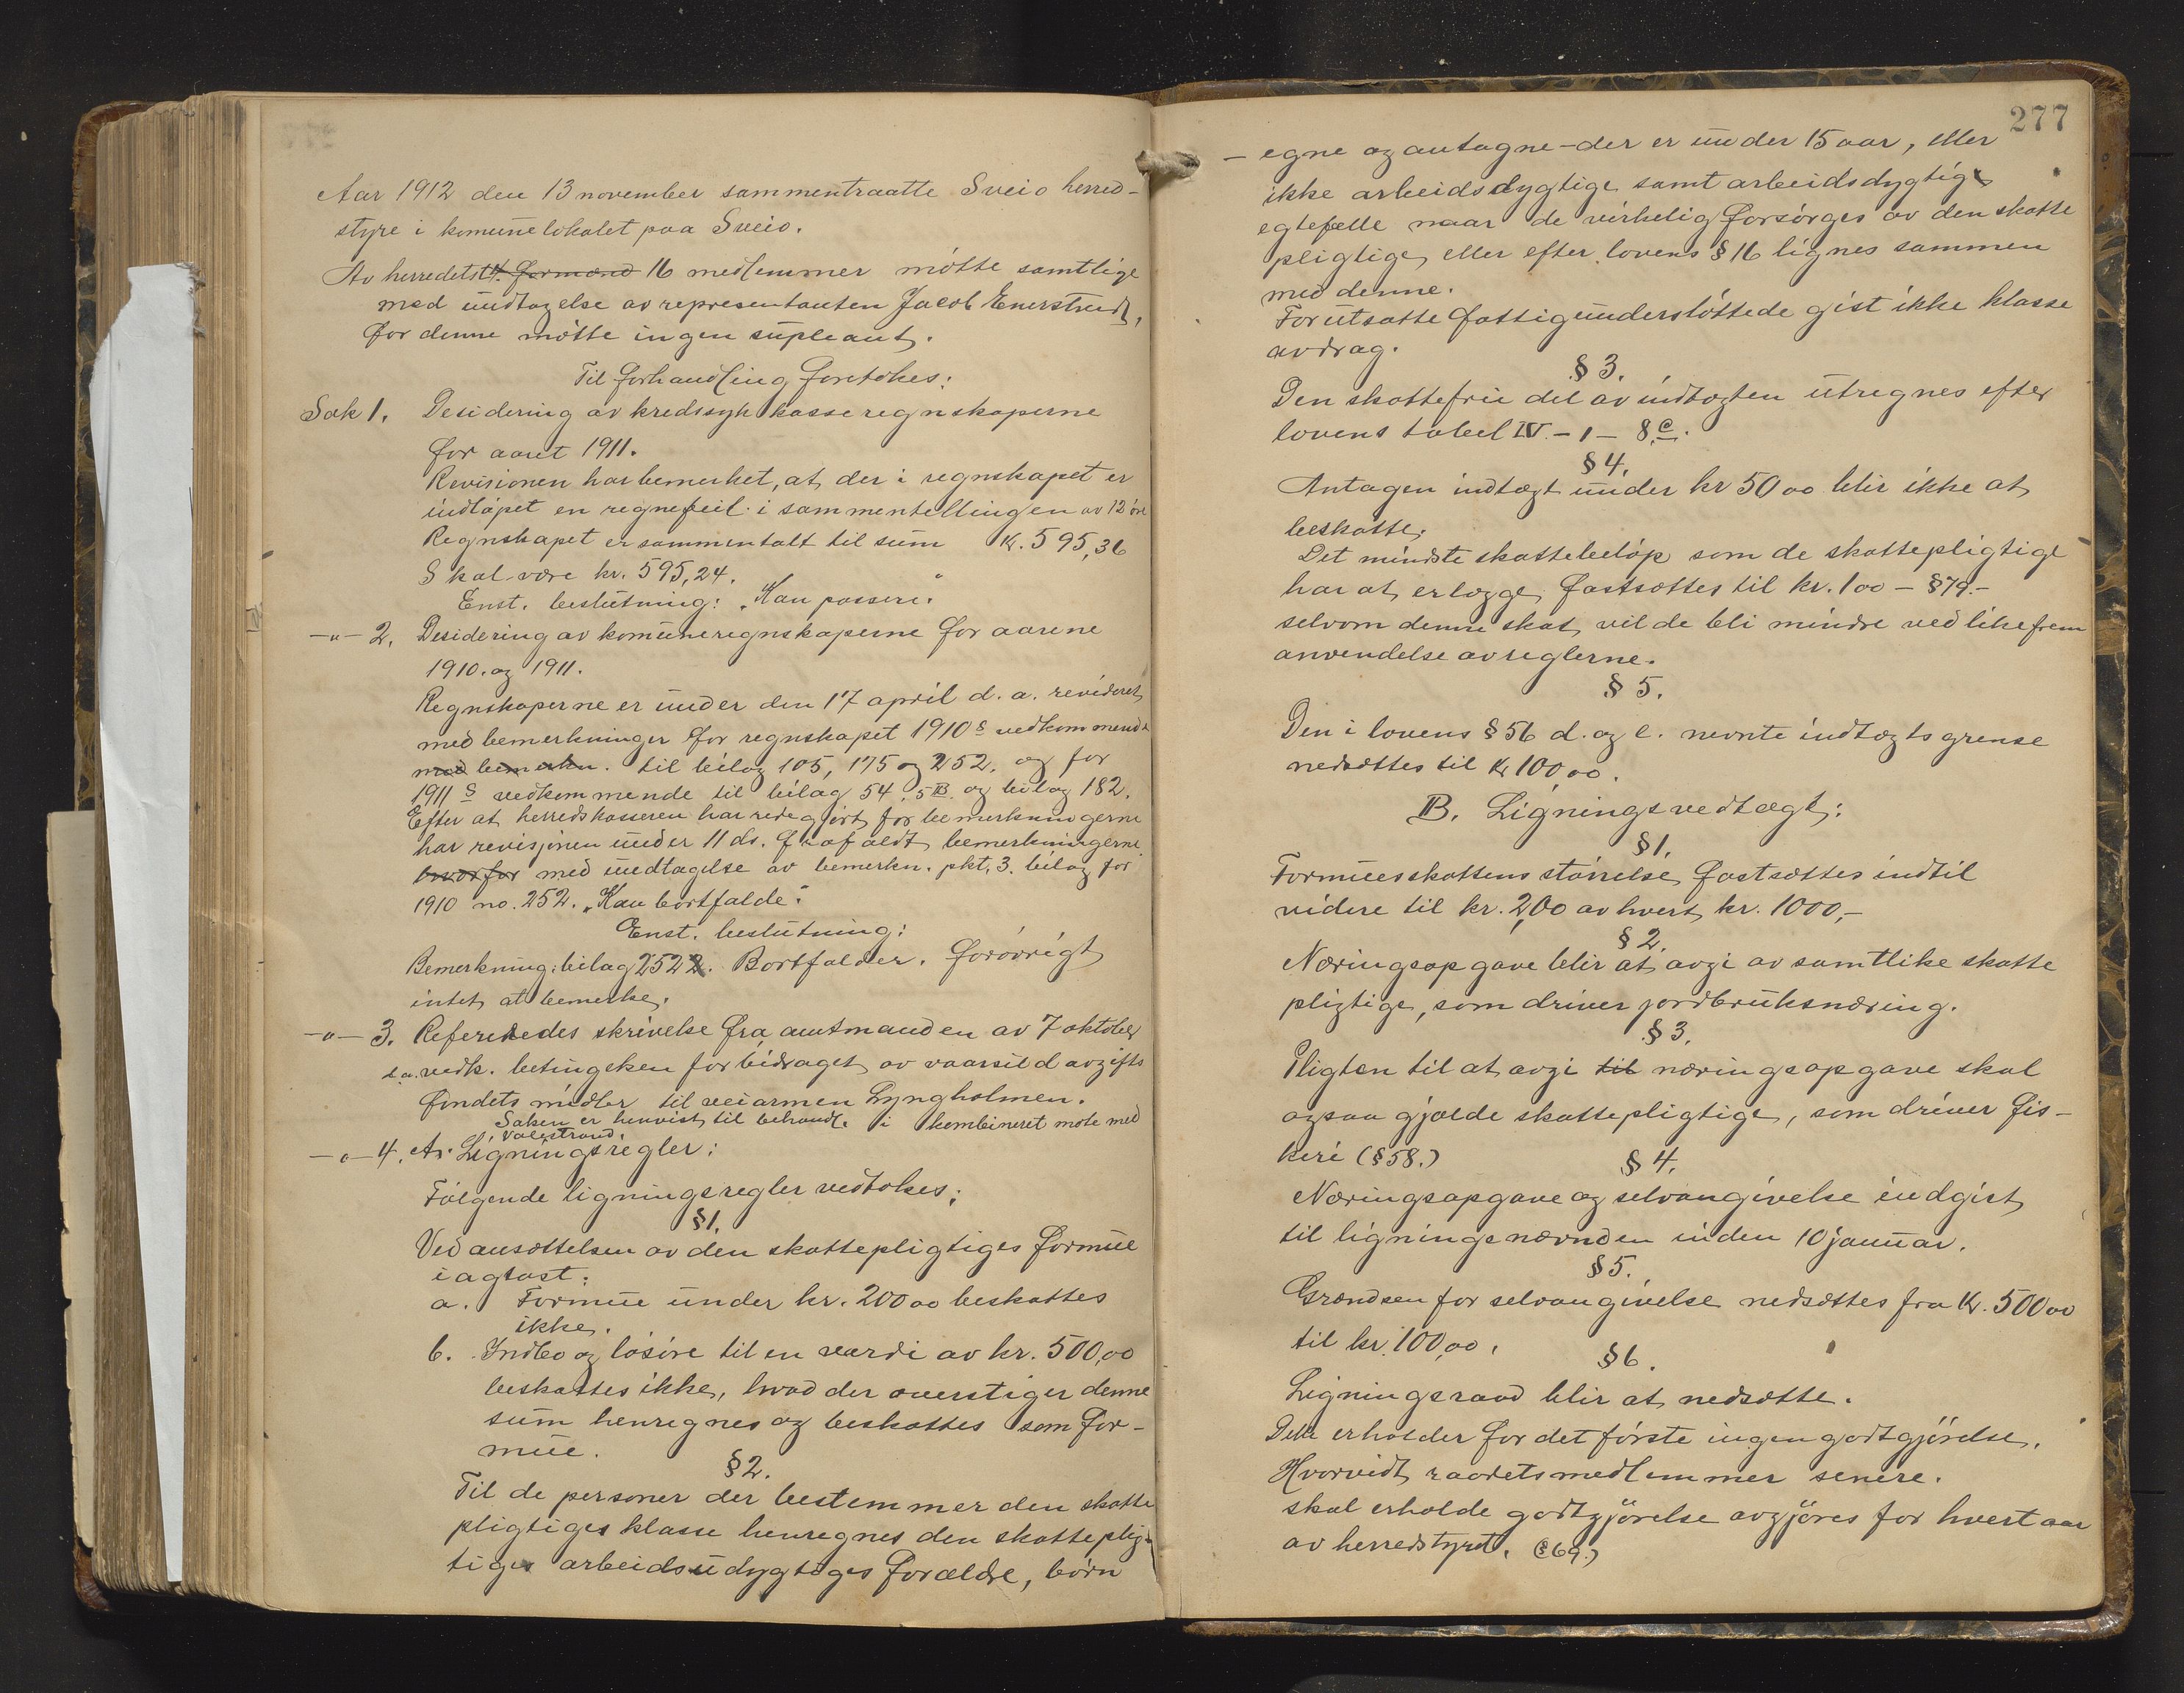 Aar 1912 den 13 november sammentraatte Sveio herred-
styre i komunelokalet paa Sveio.
Av herredets 4. formænd 16 medlemmer mötte samtlige
med undtagelse av representanten Jacob Enerstvedt,
for denne mötte ingen supleant.
Til forhandling foretokes:
Sak 1. Desidering av kredssykkasseregnskaperne
for aaret 1911.
Revisionen har bemerket, at der i regnskapet er
indlöpet en regnefeil i sammentellingen av 12 öre
Regnskapet er sammentalt til sum kr. 595,36
Skal være kr. 595,24.
Enst. beslutning: „Kan passere."
-"- 2. Desidering av komuneregnskaperne for aarene
1910. og 1911.
Regnskaperne er under den 17 april d. a. revideret
med bemerkninger for regnskapet 1910s vedkommende
med bemerkn. til bilag 105, 175 og 252. og for
1911s vedkommende til bilag 54, 5B. og bilag 182.
Efter at herredskasseren har redegjört for bemerkningerne
har revisjonen under 11 ds. frafaldt bemerkningerne
hvorfor med undtagelse av bemerkn. pkt. 3. bilag for
1910 no. 252. „Kan bortfalde."
Enst. beslutning:
Bemerkning: bilag 252. Bortfalder. forövrigt
intet at bemerke.
-"- 3. Refereredes skrivelse fra amtmanden av 7 oktober
d.a. vedk. betingelsen for bidraget av vaarsildavgifts
fondets midler til veiarmen Lyngholmen.
Saken er henvist til behandl. i kombineret möte med
Valestrand.
-"- 4. A. Ligningsregler:
Fölgende ligningsregler vedtokes:
§ 1.
Ved ansættelsen av den skattepligtiges formue
iagtast:
a. Formue under kr. 200 00 beskattes
ikke.
b. Indbo og lösöre til en værdi av kr. 500,00
beskattes ikke, hvad der overstiger denne
sum henregnes og beskattes som for-
mue.
§ 2.
Til de personer der bestemmer den skatte
pligtiges klasse henregnes den skatteplig-
tiges arbeidsudygtiges forældre, börn
277
- egne og antagne - der er under 15 aar, eller
ikke arbeidsdygtige samt arbeidsdygtige
egtefelle naar de virkelig forsörges av den skatte
pligtige, eller efter lovens § 16 lignes sammen
med denne.
Forutsatte fattigunderstöttede gist ikke klasse
avdrag.
§ 3.
Den skattefrie del av indtægten utregnes efter
lovens tabel IV. - 1 - 8 c.
§ 4.
Antagen indtægt under kr 50 00 blir ikke at
beskatte.
Det mindste skattebelöp som de skattepligtige
har at erlægge, fastsættes til kr. 1 00 - § 79. -
selvom denne skat vilde bli mindre ved likefrem
anvendelse av reglerne.
§ 5.
Den i lovens § 56 d. og e. nevnte indtægtsgrense
nedsættes til kr 100 00.
B. Ligningsvedtægt:
§ 1.
Formuesskattens störrelse fastsættes indtil
videre til kr. 2,00 av hvert kr. 1000,-
§ 2.
Næringsopgave blir at avgi av samtlike skatte
pligtige, som driver jordbruksnæring.
§ 3.
Pligten til at avgi til næringsopgave skal
ogsaa gjælde skattepligtige, som driver fis-
keri (§ 58.)
§ 4.
Næringsopgave og selvangivelse indgist
til ligningsnævnden inden 10 januar.
§ 5.
Grændsen for selvangivelse nedsættes fra kr. 500 00
til kr. 100,00.
§ 6.
Ligningsraad blir at nedsætte.
Dette erholder for det förste ingen godtgjörelse.
Hvorvidt raadets medlemmer senere.
skal erholde godtgjörelse avgjöres for hvert aar
av herredstyret. (§ 69.)